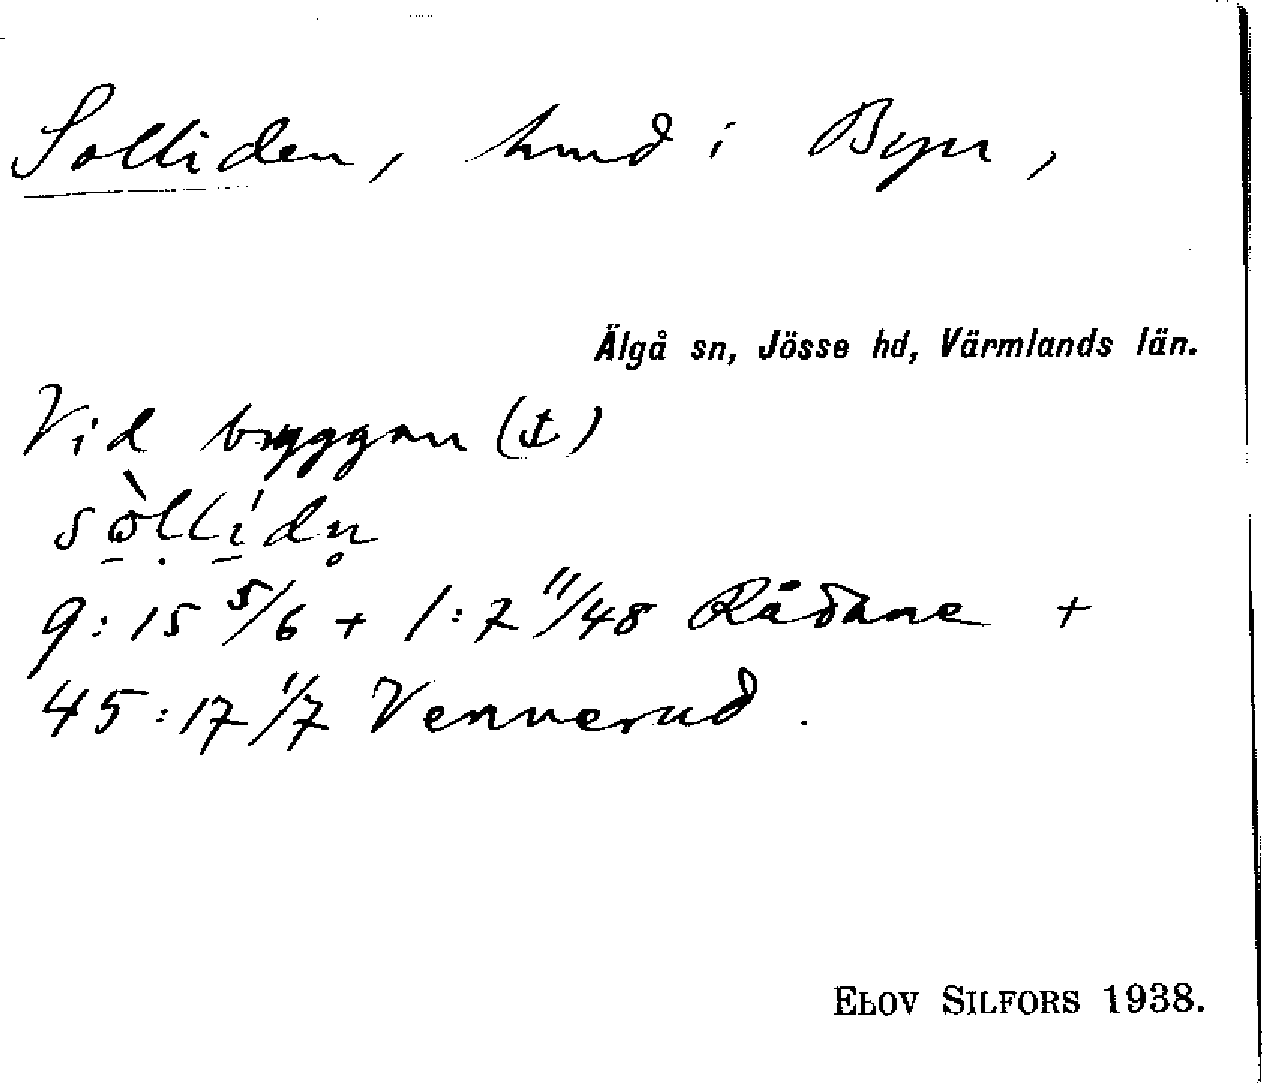 Solliden, hmd i Byn,
Älgå sn, Jösse hd, Värmlands län.
Vid bryggan (⚓)
sòllídn̥
9:15 5/6 + 1:7 11/48 Rådane +
45:17 1/7 Vennerud.
ELOV SILFORS 1938.